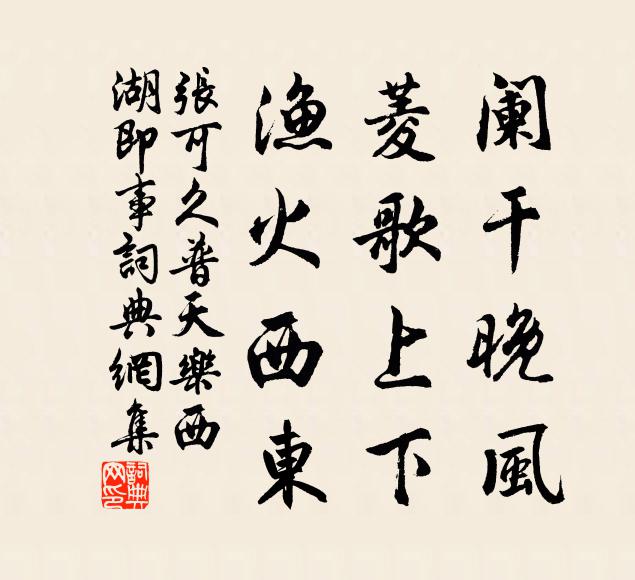 阑干晚風
菱歌上下
漁火西東
張可久普天樂西
湖即事詞典網集
詞典網印